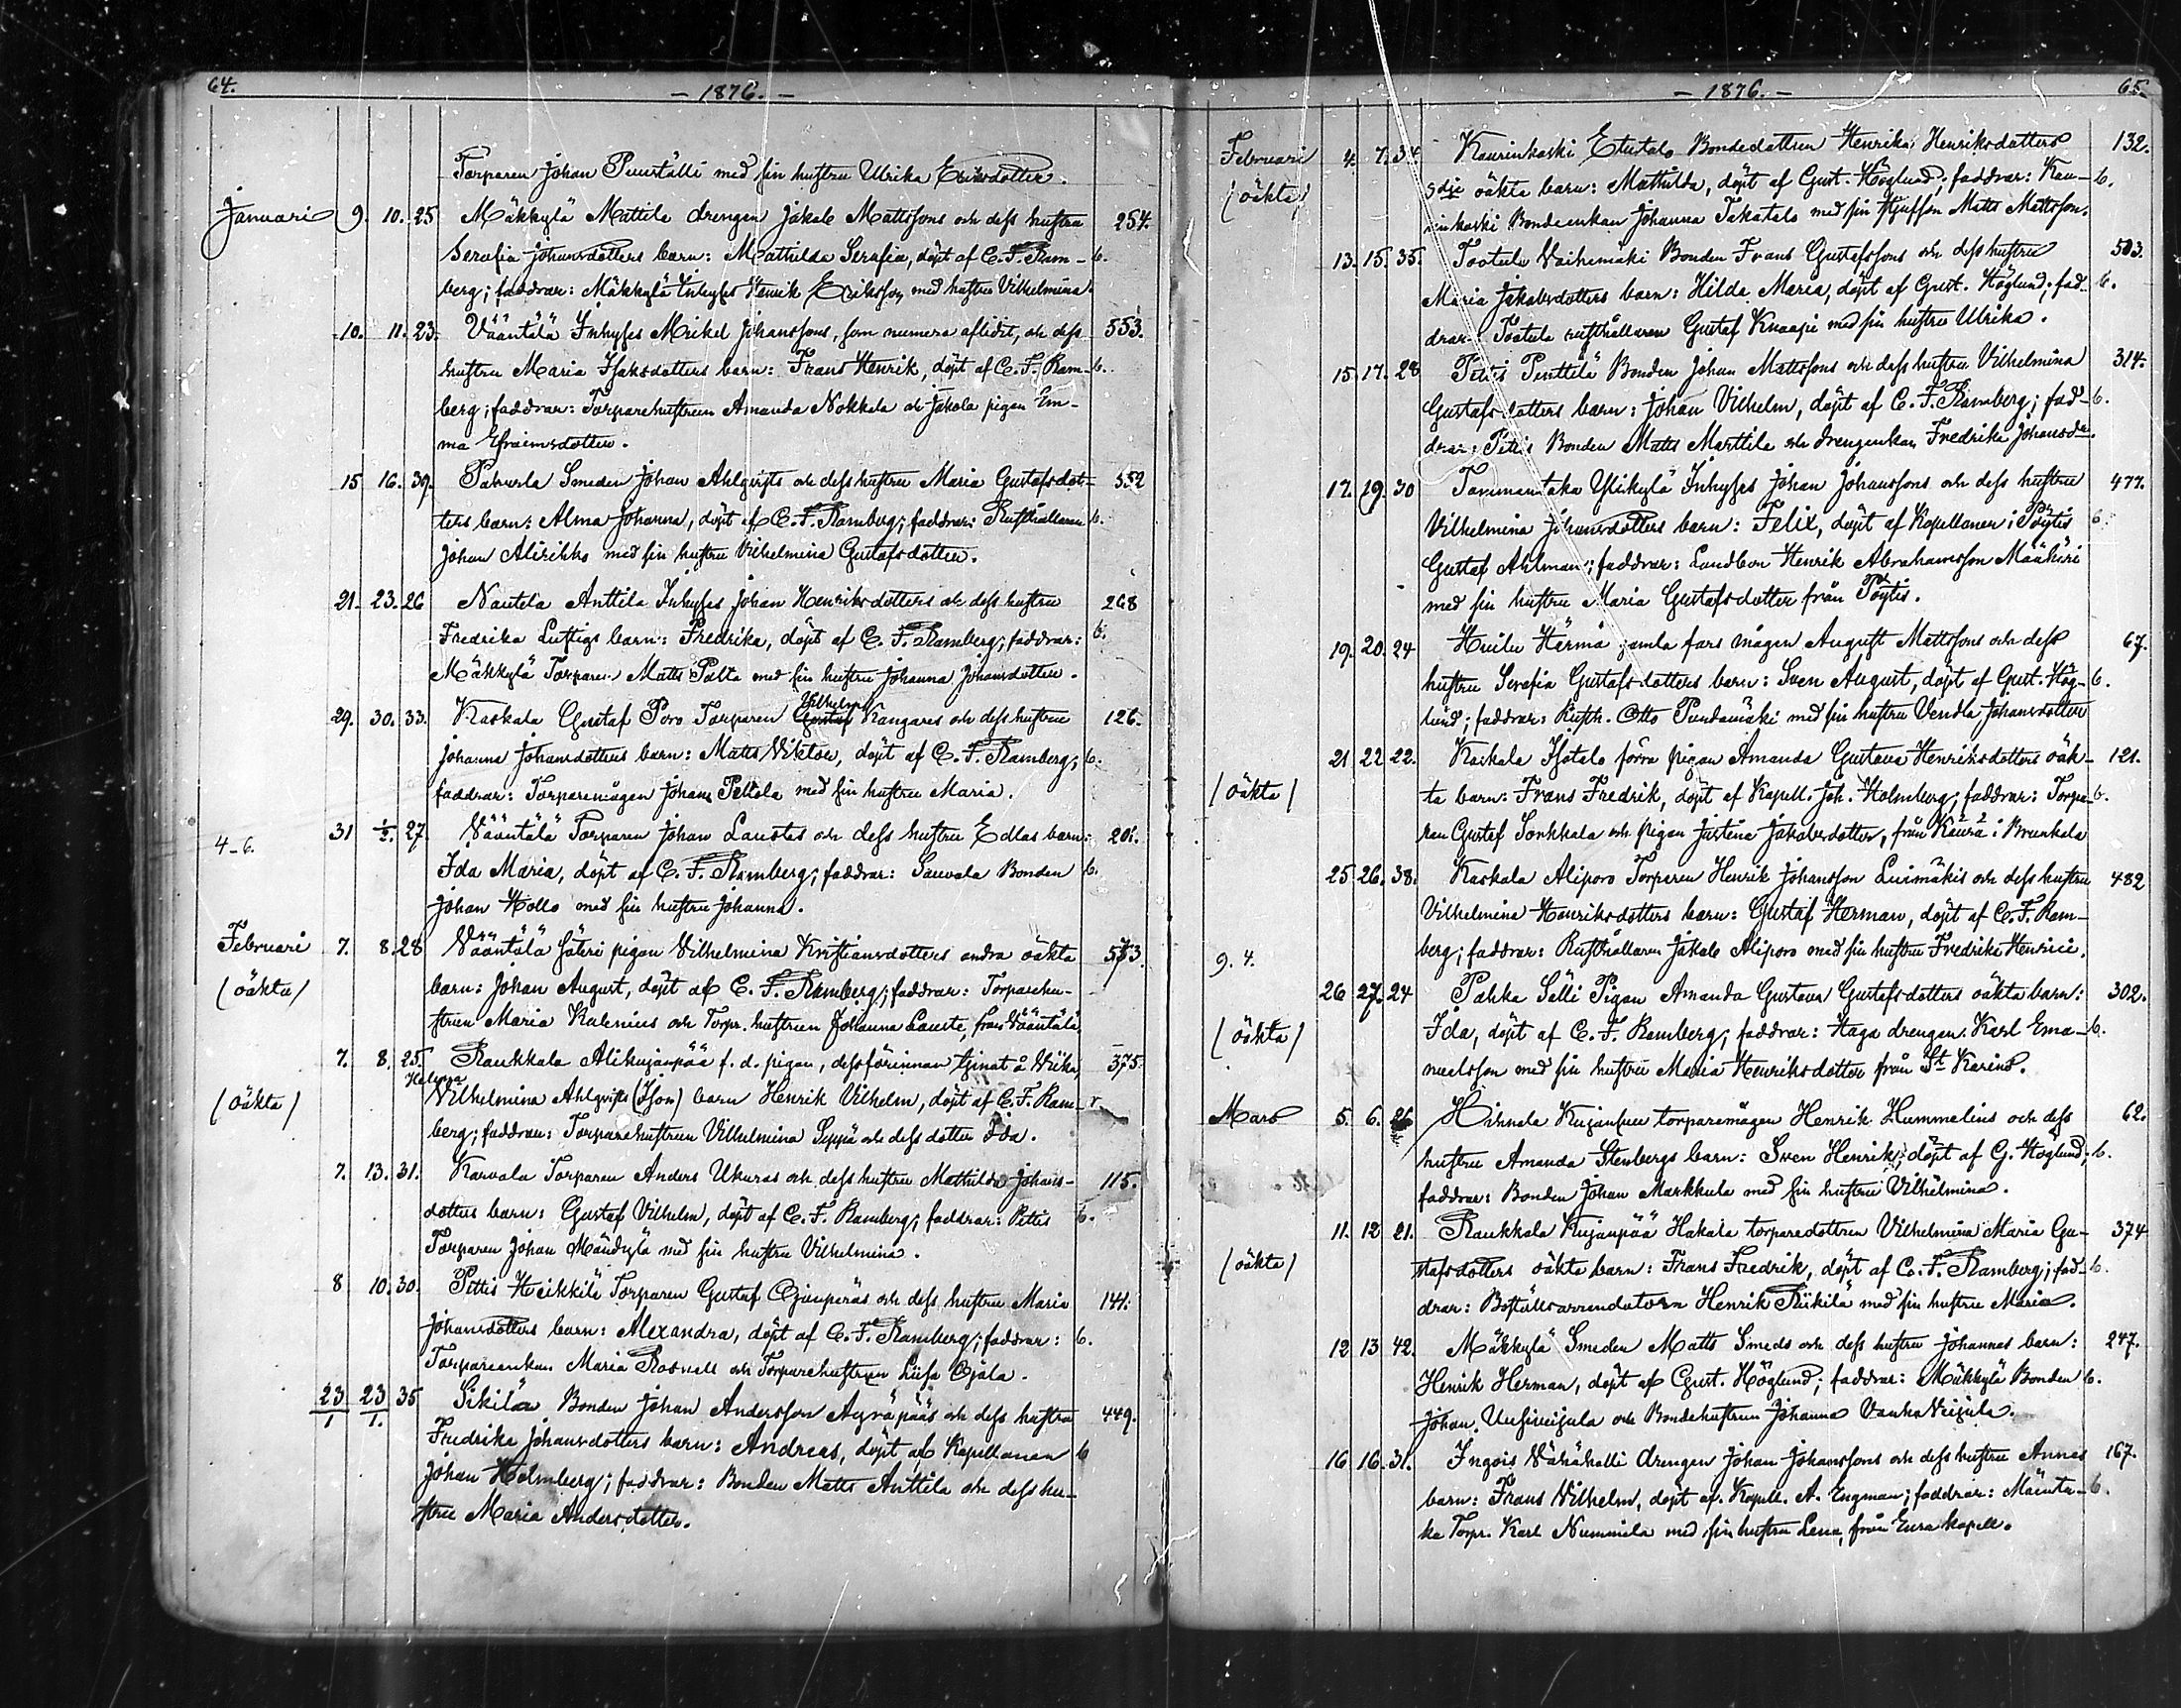 64.
- 1876. -
Torparen Johan Puuställi med sin hustru Ulrika Eriksdotter.
Januari 9. 10. 25 Mäkkylä Mattila drengen Jakob Mattssons och dess hustru 254.
Serafia Johansdotters barn: Mathilda Serafia, döpt af C. F. Ram- b.
berg; faddrar: Mäkkylä Inhyses Henrik Eriksson med hustru Vilhelmina.
10. 11. 23. Vääntälä Inhyses Mickel Johanssons, som numera aflidit, och dess 553.
hustru Maria Isaksdotters barn: Frans Henrik, döpt af C. F. Ram- b.
berg; faddrar: Torparehustrun Amanda Nokkala och Jakola pigan Em-
ma Efraimsdotter.
15 16. 39. Pahurla Smeden Johan Ahlqvists och dess hustru Maria Gustafsdot- 552
ters barn: Alma Johanna, döpt af C. F. Ramberg; faddrar: Rusthållaren b.
Johan Alirikko med sin hustru Vilhelmina Gustafsdotter.
21. 23. 26 Nautela Anttila Inhyses Johan Henriksdotters och dess hustru 268
Fredrika Lustigs barn: Fredrika, döpt af C. F. Ramberg; faddrar: b.
Mäkkylä Torparen Matts Palta med sin hustru Johanna Johansdotter.
Vilhelm
29. 30. 33. Kaskala Gustaf Poro Torparen Gustaf Kangares och dess hustru 126.
Johanna Johansdotters barn: Matts Viktor, döpt af C. F. Ramberg; b.
faddrar: Torparemågen Johan Peltola med sin hustru Maria.
4-6. 31 1/2. 27. Vääntälä Torparen Johan Laustes och dess hustru Edlas barn: 201.
Ida Maria, döpt af C. F. Ramberg; faddrar: Sauvala Bonden b.
Johan Hollo med sin hustru Johanna.
Februari 7. 8. 28 Vääntälä Säteri pigan Vilhelmina Kristiansdotters andra oäkta 553.
(oäkta) barn: Johan August, döpt af C. F. Ramberg; faddrar: Torparehu-
strun Maria Kulenius och Torpr. hustrun Johanna Lauste, från Vääntälä.
7. 8. 25. Raukkala Alikujanpää f. d. pigan, dessförinnan tjenat å 375.
Helena
(oäkta) Vilhelmina Ahlqvists (Ison) barn Henrik Vilhelm, döpt af C. F. Ram- r.
berg; faddrar: Torparehustrun Vilhelmina Seppä och dess dotter Ida.
7. 13. 31. Karvala Torparen Anders Ukuras och dess hustru Mathilda Johans- 115.
dotters barn: Gustaf Vilhelm, döpt af C. F. Ramberg; faddrar: Pettis b.
Torparen Johan Mändylä med sin hustru Vilhelmina.
8 10. 30. Pettis Heikkilä Torparen Gustaf Ojanperäs och dess hustru Maria 141.
Johansdotters barn: Alexandra, döpt af C. F. Ramberg; faddrar: b.
Torpareenkan Maria Rosnell och Torparehustrun Liisa Ojala.
23/1 23/1. 35 Sikilä Bonden Johan Andersson Ayräpääs och dess hustru 449.
Fredrika Johansdotters barn: Andreas, döpt af Kapellanen b
Johan Holmberg; faddrar: Bonden Matts Anttila och dess hu-
stru Maria Andersdotter.
- 1876. -
65.
Februari 4. 7. 34. Kaurinkoski Etutalo Bondedottren Henrika Henriksdotters 132.
(oäkta) 3dje oäkta barn: Mathilda, döpt af Gust. Höglund; faddrar: Kau- b.
rinkoski Bondeenkan Johanna Takatalo med sin Matts Mattsson.
13. 15. 35. Tortula Vaihemäki Bonden Frans Gustafssons och dess hustru 503.
Maria Jakobsdotters barn: Hilda Maria, döpt af Gust. Höglund; fad- b.
drar: Tortula rusthållaren Gustaf Knaapi med sin hustru Ulrika.
15. 17. 28 Pettis Penttilä Bonden Johan Mattssons och dess hustru Vilhelmina 314.
Gustafsdotters barn: Johan Vilhelm, döpt af C. F. Ramberg; fad- b.
drar: Pettis Bonden Matts Marttila och drengenkan Fredrika Johansdr.
17. 19. 30 Tammentaka Ylikylä Inhyses Johan Johanssons och dess hustru 477.
Vilhelmina Johansdotters barn: Felix, döpt af Kapellanen i Pöytis b.
Gustaf Ahlman; faddrar: Landbon Henrik Abrahamsson Määkiri
med sin hustru Maria Gustafsdotter från Pöytis.
19. 20. 24 Huilu Härmä gamla fars mågen August Mattssons och dess 67.
hustru Serafia Gustafsdotters barn: Sven August, döpt af Gust. Hög- b.
lund; faddrar: Rusth. Otto Pundamäki med sin hustru Vendla Johansdotter
21 22 22. Kaskala Isotalo förra pigan Amanda Gustava Henriksdotters oäk- 121.
(oäkta) ta barn: Frans Fredrik, döpt af Kapell. Joh. Holmberg; faddrar: Torpa- b.
ren Gustaf Sonkkala och pigan Justina Jakobsdotter, från Käura i Brunkala
25 26. 38. Kaskala Aliporo Torparen Henrik Johansson Luimäkis och dess hustru 482
Vilhelmina Henriksdotters barn: Gustaf Herman, döpt af C. F. Ram-
9. 4. berg; faddrar: Rusthållaren Jakob Aliporo med sin hustru Fredrika Henrici.
26 27. 24 Pahka Sälli Pigan Amanda Gustava Gustafsdotters oäkta barn: 302.
(oäkta) Ida, döpt af C. F. Ramberg; faddrar: Haga drengen Karl Ema- b.
nuelsson med sin hustru Maria Henriksdotter från St Karins.
Mars 5. 6. 26 Hihnala Kujansuu torparemågen Henrik Hummelins och dess 62.
hustru Amanda Stenbergs barn: Sven Henrik, döpt af G. Höglund; b.
faddrar: Bonden Johan Markkula med sin hustru Vilhelmina.
11. 12 21. Raukkala Kujanpää Hakala torparedottren Vilhelmina Maria Gu- 374
(oäkta) stafsdotters oäkta barn: Frans Fredrik, döpt af C. F. Ramberg; fad- b.
drar: Boställsarrendatorn Henrik Riikilä med sin hustru Maria.
12 13 42. Mäkkylä Smeden Matts Smeds och dess hustru Johannas barn: 247.
Henrik Herman, döpt af Gust. Höglund; faddrar: Mäkkylä Bonden b.
Johan Uusiveijula och Bondehustrun Johanna VanhaVeijula.
16 16. 31. Ingois Vähähalli drengen Johan Johanssons och dess hustru Annas 167.
barn: Frans Vilhelm, döpt af Kapell. A. Engman; faddrar: Mäenta- b.
ka Torpr. Karl Nummila med sin hustru Lena, från Eura kapell.